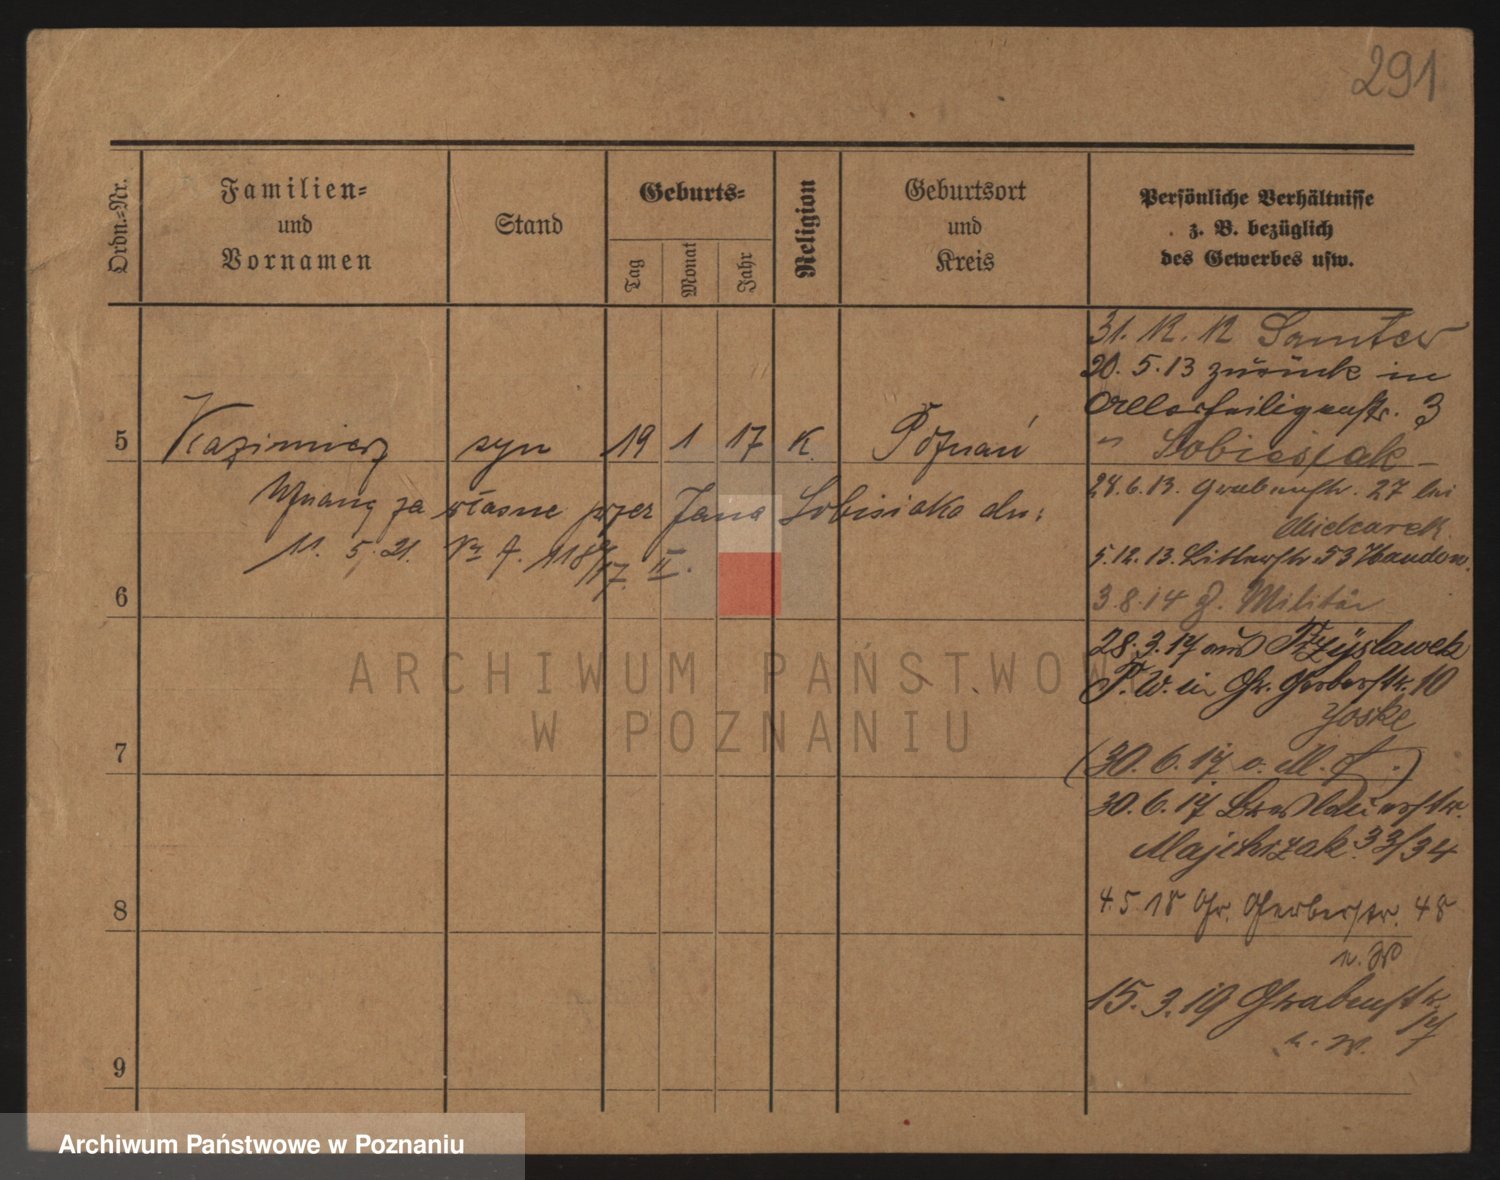 291
Ordn.=Nr.
Familien=
und
Vornamen
Stand
Geburts=
Tag
Monat
Jahr
Religion
Geburtsort
und
Kreis
Persönliche Verhältnisse
z. B. bezüglich
des Gewerbes usw.
31. 12. 12 Samter
20. 5. 13 zurück in
Allerheiligenstr. 3
" Sobiesiak
5 Kazimierz syn 19 1 17 K. Poznań
24. 6. 13. Grabenstr. 27 bei
Uznany za własne przez Jana Sobisiaka dn:
Michcarek
11. 5. 21. Nr 118/17. II.
5. 12. 13. 53
6
3. 8. 14 z. Militär
28. 3. 17 aus
P. W. in Gr. Gerberstr. 10
Joske
7
(30. 6. 17 v. M. .)
30. 6. 17 Breslauerstr.
Majchrzak 33/34
8
4. 5. 18 Gr. Gerberstr. 48
n. W
15. 3. 19 Grabenstr.
17
n. W.
9
ARCHIWUM PAŃSTWOW
W POZNANIU
Archiwum Państwowe w Poznaniu